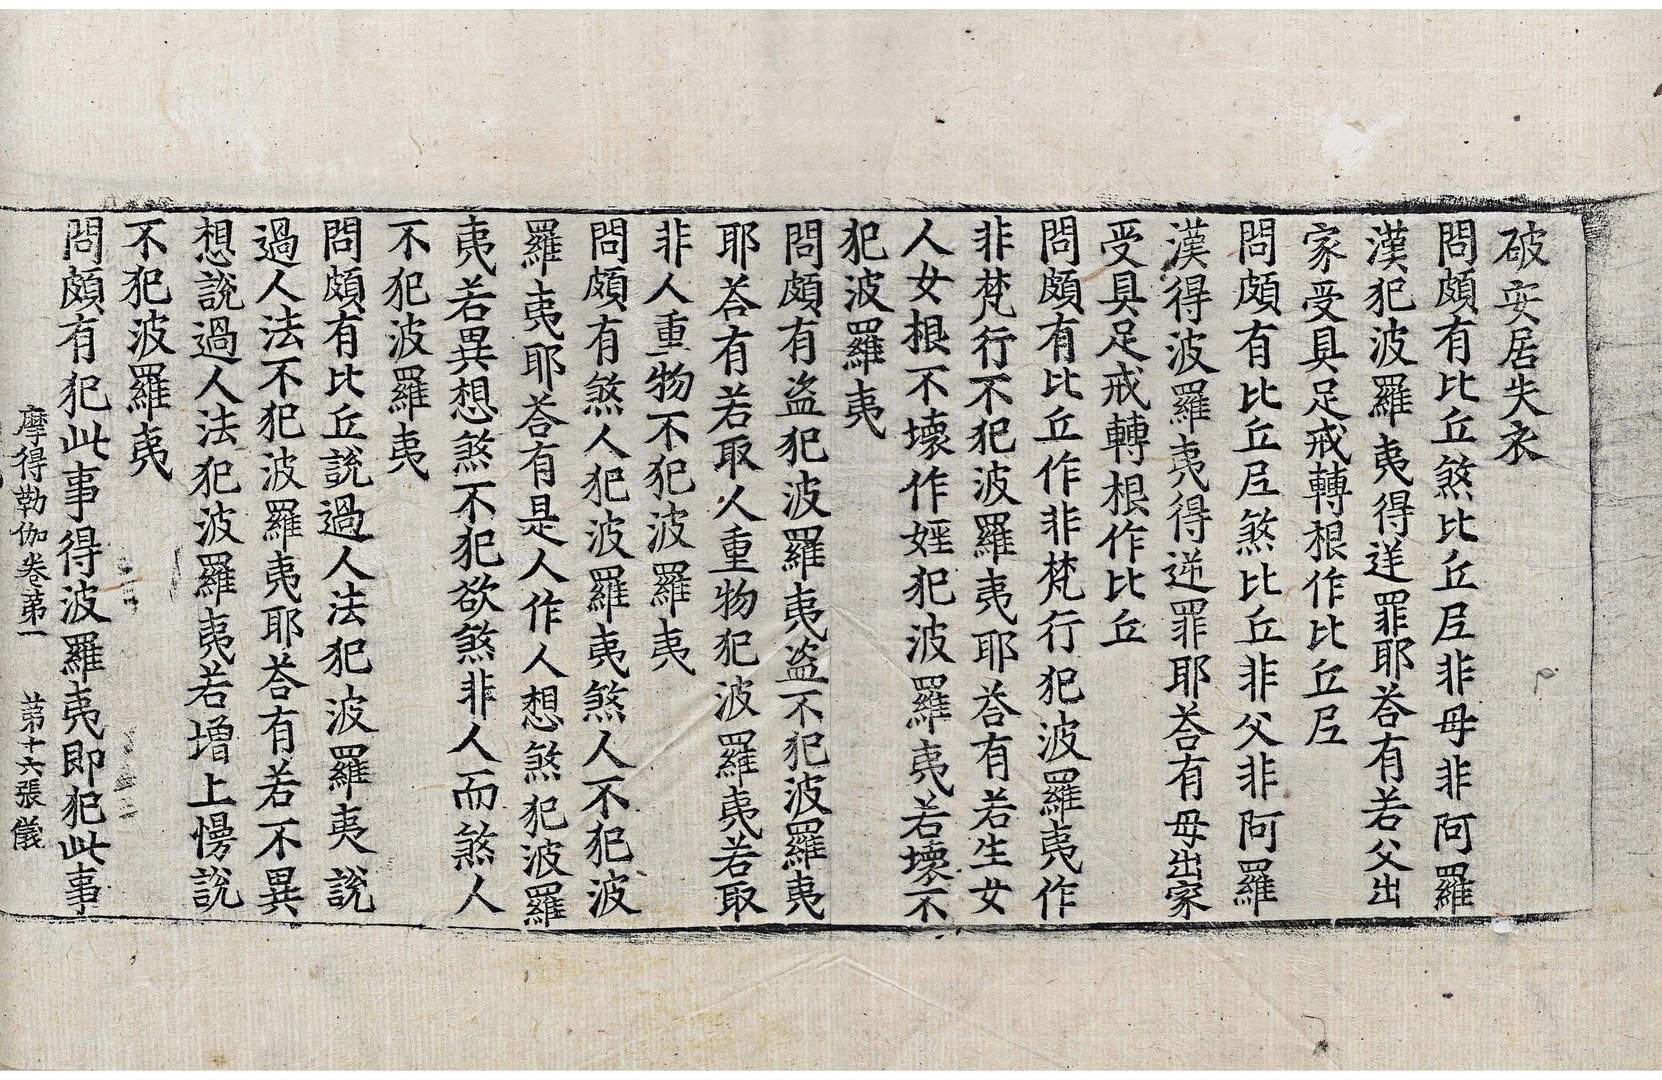 破安居失衣
問頗有比丘煞比丘尼非母非阿羅
漢犯波羅夷得逆罪耶荅有若父出
家受具足戒轉根作比丘尼
問頗有比丘尼煞比丘非父非阿羅
漢得波羅夷得逆罪耶荅有母出家
受具足戒轉根作比丘
問頗有比丘作非梵行犯波羅夷作
非梵行不犯波羅夷耶荅有若生女
人女根不壞作婬犯波羅夷若壞不
犯波羅夷
問頗有盜犯波羅夷盜不犯波羅夷
耶荅有若取人重物犯波羅夷若取
非人重物不犯波羅夷
問頗有煞人犯波羅夷煞人不犯波
羅夷耶荅有是人作人想煞犯波羅
夷若異想煞不犯欲煞非人而煞人
不犯波羅夷
問頗有比丘說過人法犯波羅夷說
過人法不犯波羅夷耶荅有若不異
想說過人法犯波羅夷若增上慢說
不犯波羅夷
問頗有犯此事得波羅夷即犯此事
摩得勒伽卷第一 第十六張 儀